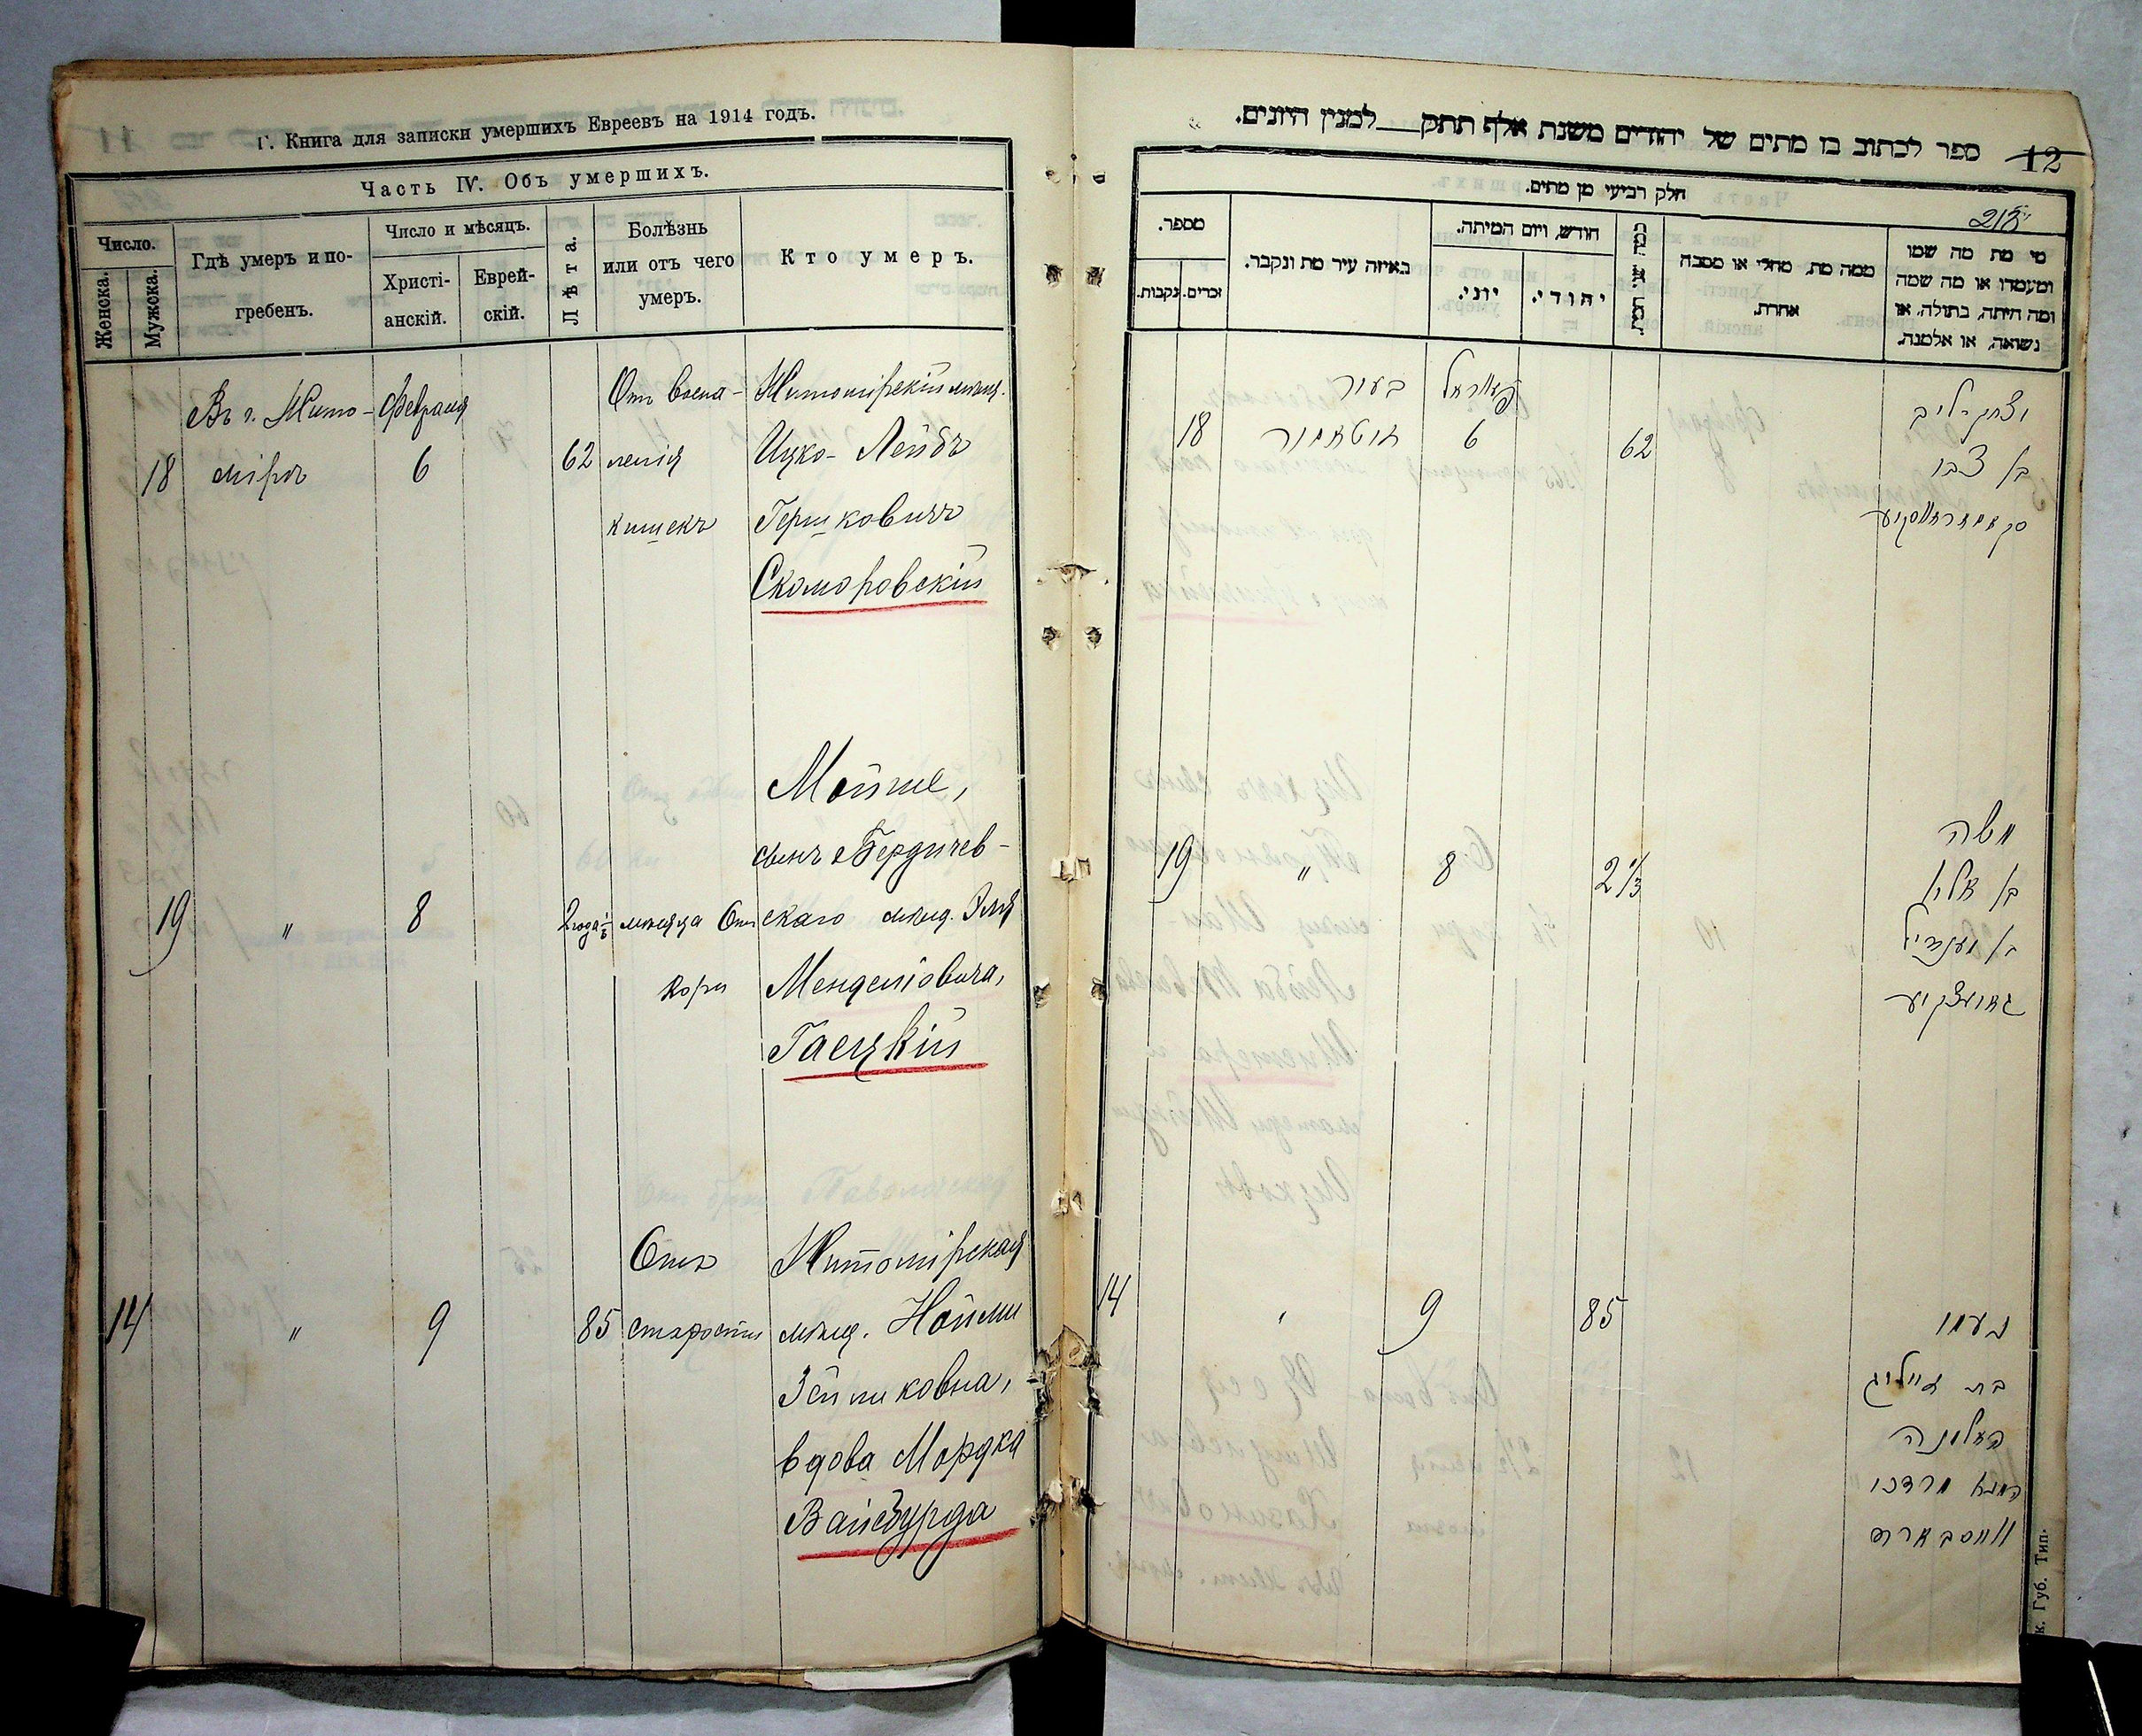 Г. Книга для записки умершихъ Евреевъ на 1914 годъ.
Часть IV. Объ умершихъ.
Число.
Женска.
Мужска.
Гдѣ умеръ и по-
гребенъ.
Число и мѣсяцъ.
Христі-
анскій.
Еврей-
скій.
Лѣта.
Болѣзнь
или отъ чего
умеръ.
Кто умеръ.
18
Въ г. Жито-
мірѣ
Февраля
6
62
Отъ воспа-
ленія
кишекъ
Житомірскій мѣщ.
Ицко-Лейбъ
Гершковичъ
Скоморовскій
19
"
8
2 года
мѣсяца Отъ
кори
Мойше,
сынъ Бердичев-
скаго мѣщ. Эля
Менделіовича,
Гаецкій
14
"
9
85
Отъ
старости
Житомірская
мѣщ. Нойми
Зейликовна,
вдова Мордка
Вайсбурда
ספר לכתוב בו מתים של יהודים משנת אלף תתק למנין היונים.
12
חלק רביעי מן מתים.
מספר.
נקבות.
זכרים.
באיזה עיר מת ונקבר.
חודש, ויום המיתה.
יוני.
יהודי.
ממה מת, מחלי או מסבה
אחרת.
מי מת מה שמו
ומעמדו או מה שמה
ומה היתה, בתולה, או
נשואה, או אלמנה.
18
בעיר
זיטאמיר
6
62
יצחק-ליב
בן צבי
19
"
8
2 1/3
משה
בן אלי
בן מענדיל
14
"
9
85
נעמי
בת זייליג
האלמנה
מרדכי
ווייסבארד
к. Губ. Тип.